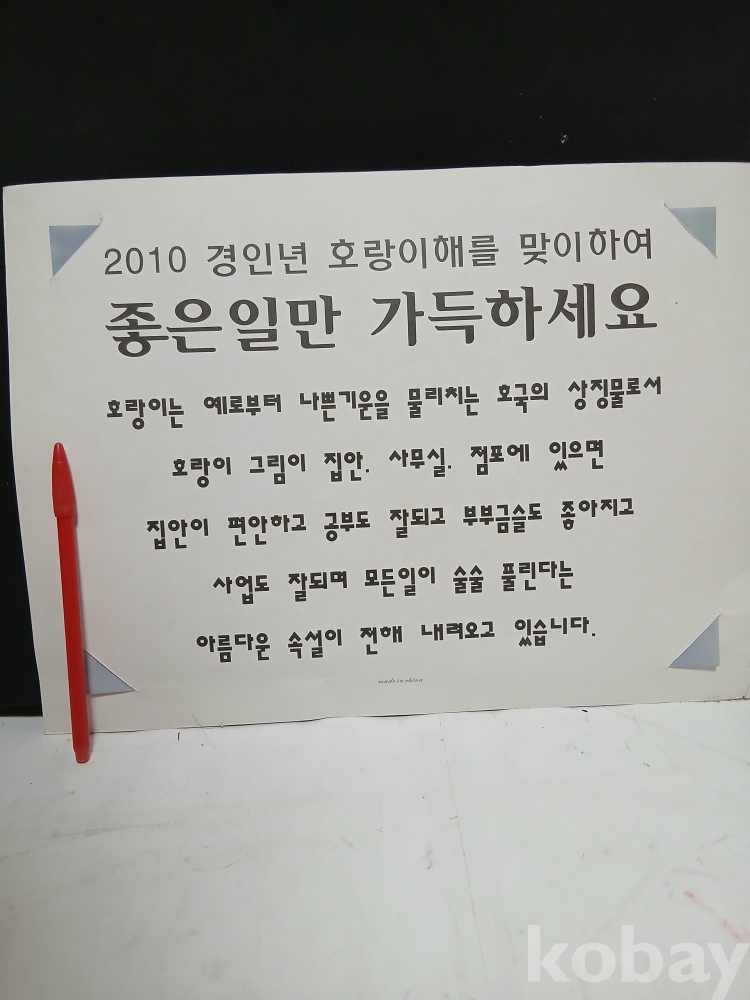 2010 경인년 호랑이해를 맞이하여
좋은일만 가득하세요
호랑이는 예로부터 나쁜기운을 물리치는 호국의 상징물로서
호랑이 그림이 집안. 사무실. 점포에 있으면
집안이 편안하고 공부도 잘되고 부부금슬도 좋아지고
사업도 잘되며 모든일이 술술 풀린다는
아름다운 속설이 전해 내려오고 있습니다.
made in china
kobay